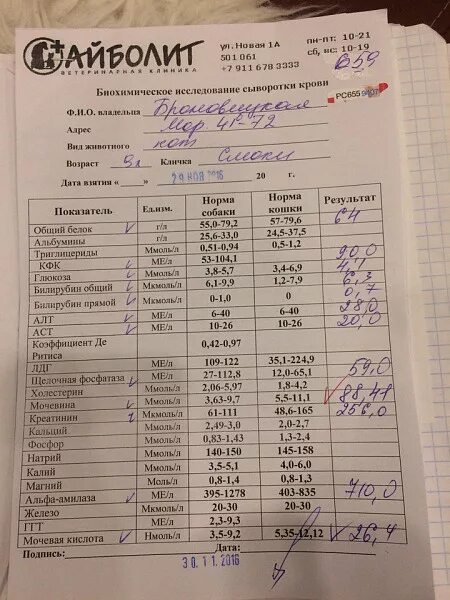 АЙБОЛИТ
ВЕТЕРИНАРНАЯ КЛИНИКА
ул. Новая 1А
501 061
+7 911 678 3333
пн-пт: 10-21
сб, вс: 10-19
659
Биохимическое исследование сыворотки крови
РС655
Ф.И.О. владельца Броновицкая
Адрес Мар. 41-72
Вид животного кот
Возраст 9л Кличка Смоки
Дата взятия «___» 29 НОЯ 2016 20 г.
Показатель Ед.изм. Норма собаки Норма кошки Результат
Общий белок г/л 55,0-79,2 57-79,6 64
Альбумины г/л 25,6-33,0 24,5-37,5
Триглицериды Ммоль/л 0,51-0,94 0,5-1,2
КФК МЕ/л 53-104,1 90,0
Глюкоза Ммоль/л 3,8-5,7 3,4-6,9 4,1
Билирубин общий Мкмоль/л 6,1-9,9 1,2-7,9 6,3
Билирубин прямой Мкмоль/л 0-1,0 0 0,7
АЛТ МЕ/л 6-40 6-40 28,0
АСТ МЕ/л 10-26 10-26 20,0
Коэффициент Де Ритиса 0,42-0,97
ЛДГ МЕ/л 109-122 35,1-224,9
Щелочная фосфатаза МЕ/л 27-112,8 12,0-65,1 59,0
Холестерин Ммоль/л 2,06-5,97 1,8-4,2
Мочевина Ммоль/л 3,63-9,7 5,5-11,1 88,41
Креатинин Мкмоль/л 61-111 48,6-165 256,0
Кальций Ммоль/л 2,49-3,0 2,0-2,7
Фосфор Ммоль/л 0,83-1,43 1,3-2,4
Натрий Ммоль/л 140-150 145-158
Калий Ммоль/л 3,5-5,1 4,0-6,0
Магний Моль/л 0,8-1,4 0,8-1,3
Альфа-амилаза МЕ/л 395-1278 403-835 710,0
Железо Мкмоль/л 20-30 20-30
ГГТ МЕ/л 2,3-9,3
Мочевая кислота Нмоль/л 3,5-9,2 5,35-12,12 26,4
Подпись: Дата:
30.11.2016